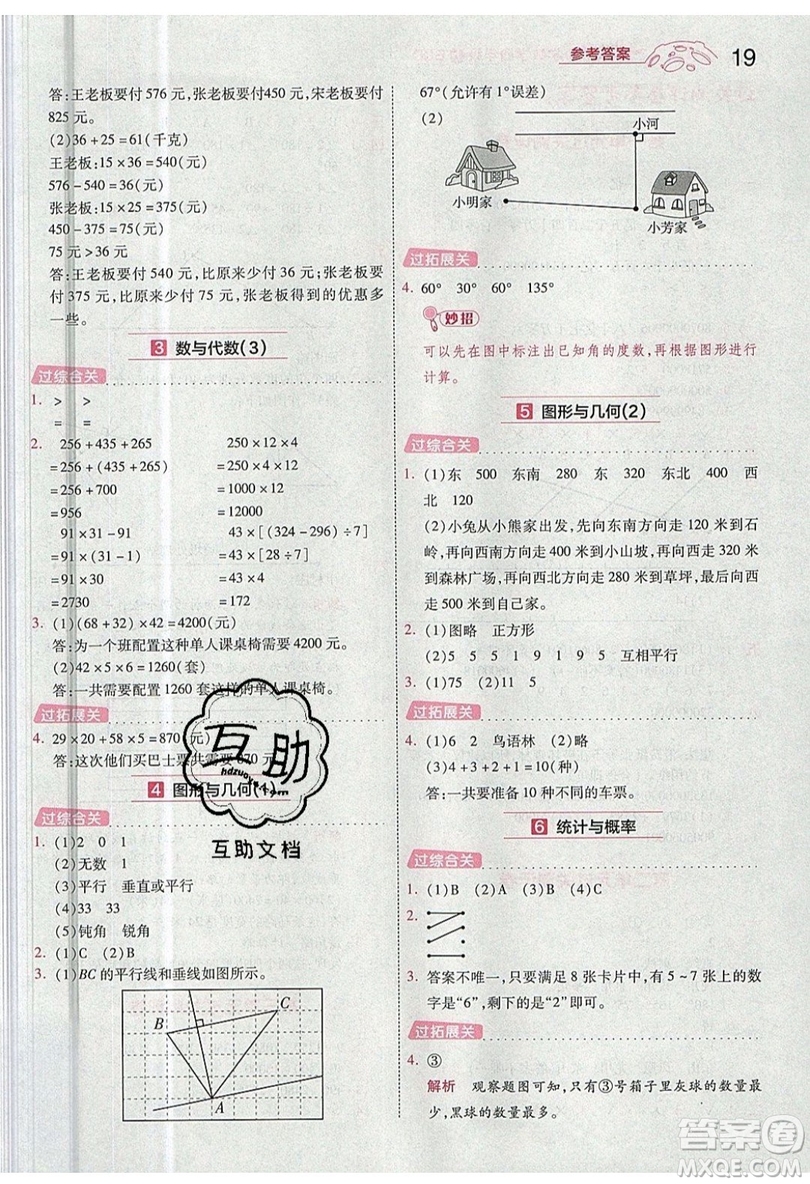 参考答案 19
答:王老板要付 576 元,张老板要付 450 元,宋老板要付
825 元。
(2)36+25=61(千克)
王老板:15×36=540(元)
576-540=36(元)
张老板:15×25=375(元)
450-375=75(元)
75 元>36 元
答:王老板要付 540 元,比原来少付 36 元;张老板要付
375 元,比原来少付 75 元,张老板得到的优惠多
一些。
3 数与代数(3)
过综合关
1. > >
= =
2. 256+435+265 250×12×4
=256+(435+265) =250×4×12
=256+700 =1000×12
=956 =12000
91×31-91 43×[(324-296)÷7]
=91×(31-1) =43×[28÷7]
=91×30 =43×4
=2730 =172
3. (1)(68+32)×42=4200(元)
答:为一个班配置这种单人课桌椅需要 4200 元。
(2)42×5×6=1260(套)
答:一共需要配置 1260 套这样的单人课桌椅。
过拓展关
4. 29×20+58×5=870(元)
答:这次他们买巴士票共需要 870 元。
4 图形与几何(1)
过综合关
1. (1)2 0 1
(2)无数 1
(3)平行 垂直或平行
(4)33 33
(5)钝角 锐角
2. (1)C (2)B
3. (1)BC 的平行线和垂线如图所示。
B
C
A
67°(允许有 1°误差)
(2)
小河
小明家
小芳家
过拓展关
4. 60° 30° 60° 135°
妙招
可以先在图中标注出已知角的度数,再根据图形进行
计算。
5 图形与几何(2)
过综合关
1. (1)东 500 东南 280 东 320 东北 400 西
北 120
(2)小兔从小熊家出发,先向东南方向走 120 米到石
岭,再向西南方向走 400 米到小山坡,再向西走 320 米
到森林广场,再向西北方向走 280 米到草坪,最后向西
走 500 米到自己家。
2. (1)图略 正方形
(2)5 5 5 1 9 1 9 5 互相平行
3. (1)75 (2)11 5
过拓展关
4. (1)6 2 鸟语林 (2)略
(3)4+3+2+1=10(种)
答:一共要准备 10 种不同的车票。
6 统计与概率
过综合关
1. (1)B (2)A (3)B
2.
3. 答案不唯一,只要满足 8 张卡片中,有 5~7 张上的数
字是“6”,剩下的是“2”即可。
过拓展关
4. ③
解析 观察题图可知,只有③号箱子里灰球的数量最
少,黑球的数量最多。
互助
互助文档
答案圈
MXQE.COM